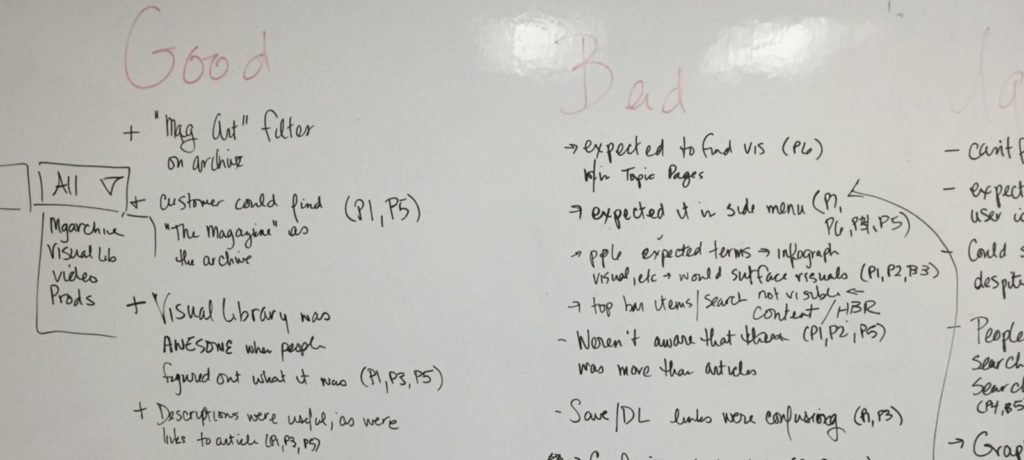 Good
+ "Mag Art" filter
on archive
All ▽
Mgarchive
Visual Lib
Video
Prods
+ customer could find (P1, P5)
"The Magazine" as
the archive
+ Visual Library was
AWESOME when people
figured out what it was (P1, P3, P5)
+ Descriptions were useful, as were
links to article (P1, P3, P5)
Bad
→ expected to find vis (P6)
w/in Topic Pages
→ expected it in side menu (P7,
P6, P5)
→ ppl expected terms → infograph
visual, etc → would surface visuals (P1, P2, P3)
→ top bar items/search not visible ←
content/HBR
- Weren't aware that there (P1, P2, P5)
was more than articles
- Save/DL links were confusing (P1, P3)
- can't
- expect
user
Could
despit
- People
search
search
→ Grap